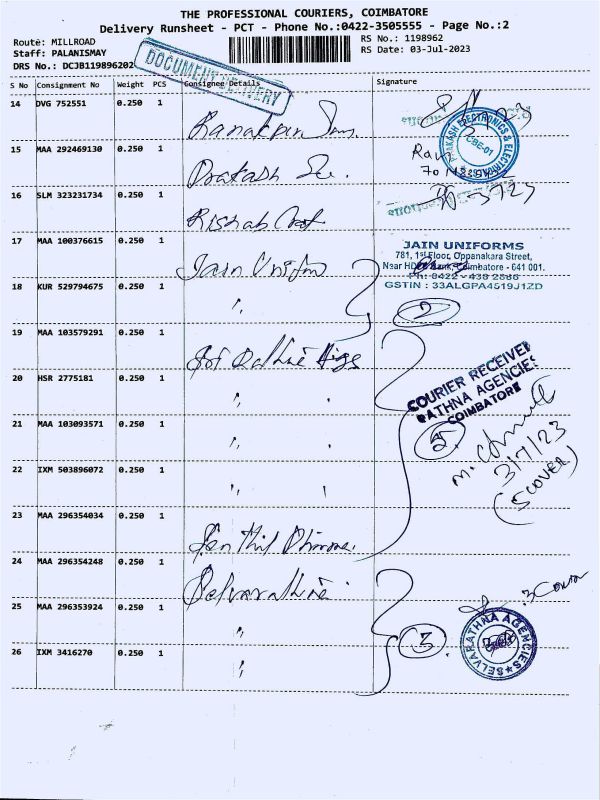 THE PROFESSIONAL COURIERS, COIMBATORE
Delivery Runsheet - PCT - Phone No.:0422-3505555 - Page No.:2
Route: MILLROAD
Staff: PALANISMAY
DRS No.: DCJB119896202
RS No.: 1198962
RS Date: 03-Jul-2023
DOCUMENT DELIVERY
S No Consignment No Weight PCS Consignee Details Signature
14 DVG 752551 0.250 1
15 MAA 292469130 0.250 1 Prakash
PRAKASH ELECTRONICS & ELECTRICALS
CBE-01
16 SLM 323231734 0.250 1 Rishab
17 MAA 100376615 0.250 1 Jain Uniform
JAIN UNIFORMS
781, 1st Floor, Oppanakara Street,
Near HDFC Bank, Coimbatore - 641 001.
Ph: 0422 - 438 2586
GSTIN : 33ALGPA4519J1ZD
18 KUR 529794675 0.250 1 "
2
19 MAA 103579291 0.250 1
20 HSR 2775181 0.250 1 "
COURIER RECEIVED
RATHNA AGENCIES
COIMBATORE
21 MAA 103093571 0.250 1 "
5
3/7/23
(5 COVER)
22 IXM 503896072 0.250 1 "
23 MAA 296354034 0.250 1 Senthil
24 MAA 296354248 0.250 1 Selvarathna
3 Cover
25 MAA 296353924 0.250 1 "
3
SELVARATHNA AGENCIES
26 IXM 3416270 0.250 1 "